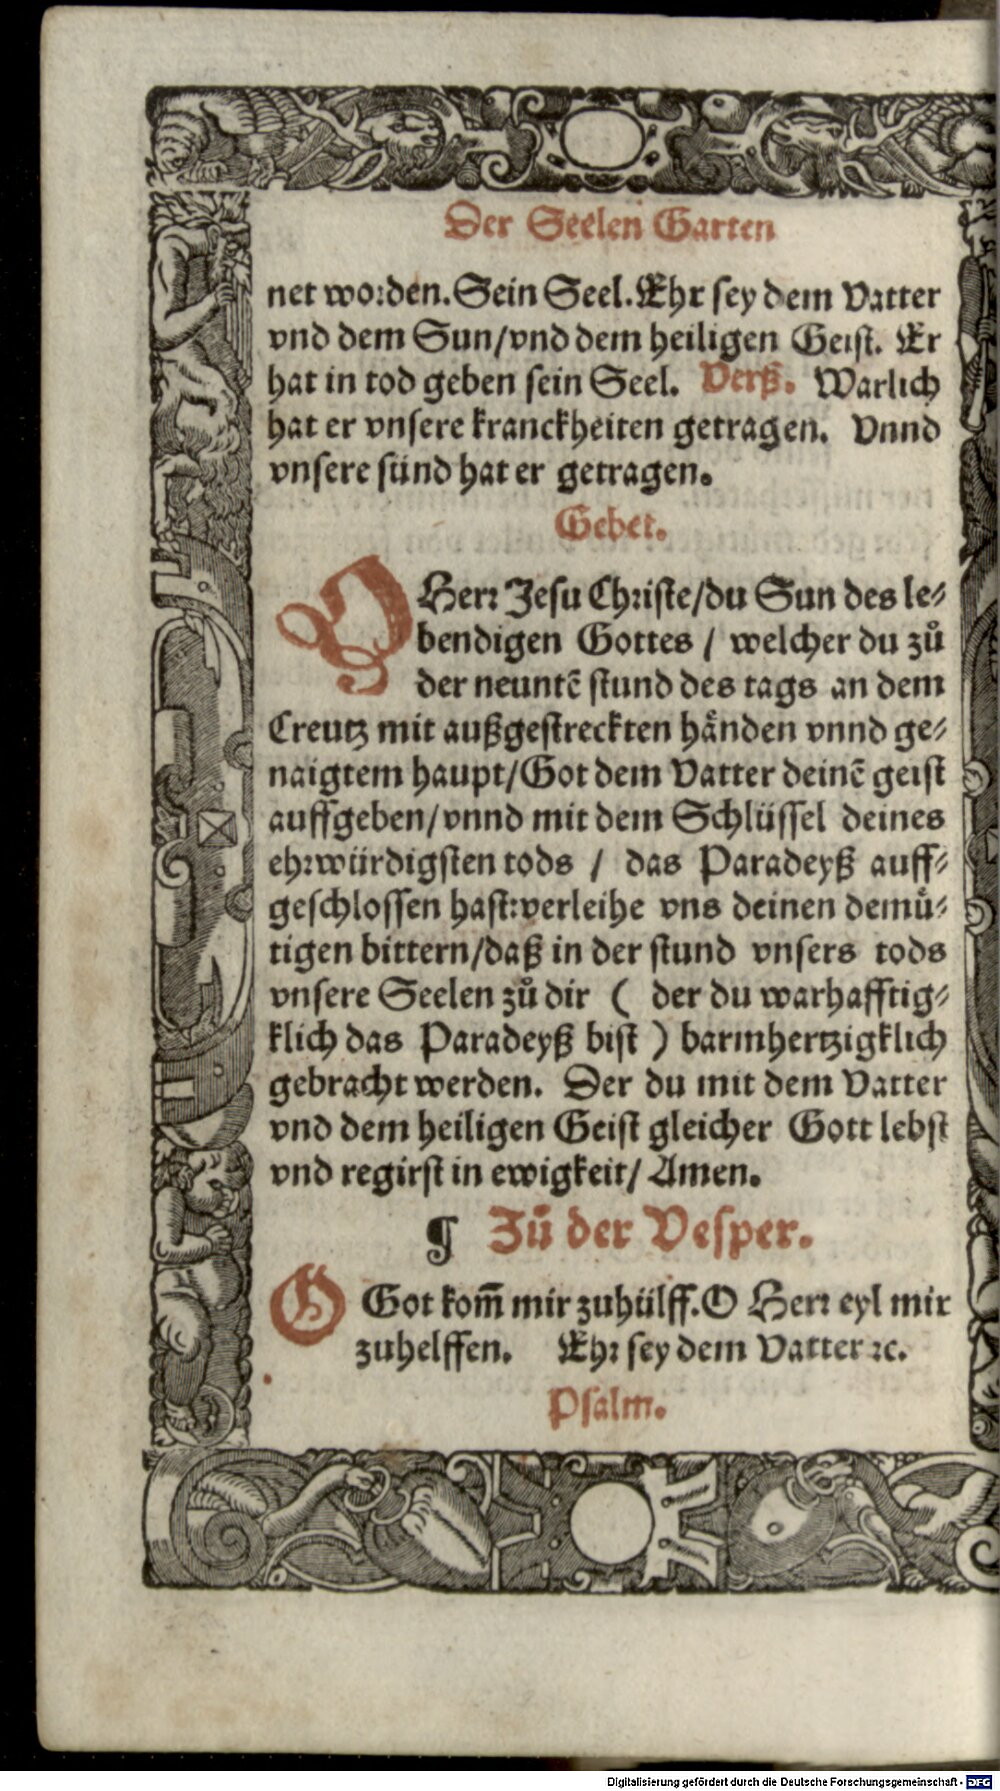 Der Seelen Garten
net worden. Sein Seel. Ehr sey dem Vatter
vnd dem Sun/vnd dem heiligen Geist. Er
hat in tod geben sein Seel. Verß. Warlich
hat er vnsere kranckheiten getragen. Vnnd
vnsere sünd hat er getragen.
Gebet.
O Herr Jesu Christe/du Sun des le⸗
bendigen Gottes / welcher du zů
der neuntē stund des tags an dem
Creutz mit außgestreckten hånden vnnd ge⸗
naigtem haupt/Got dem Vatter deinē geist
auffgeben/vnnd mit dem Schlüssel deines
ehrwürdigsten tods / das Paradeyß auff⸗
geschlossen hast:verleihe vns deinen demů⸗
tigen bittern/daß in der stund vnsers tods
vnsere Seelen zů dir ( der du warhafftig⸗
klich das Paradeyß bist ) barmhertzigklich
gebracht werden. Der du mit dem Vatter
vnd dem heiligen Geist gleicher Gott lebst
vnd regirst in ewigkeit/ Amen.
¶ Zů der Vesper.
O Got kom̄ mir zuhülff. O Herr eyl mir
zuhelffen. Ehr sey dem Vatter ꝛc.
Psalm.
Digitalisierung gefördert durch die Deutsche Forschungsgemeinschaft - DFG